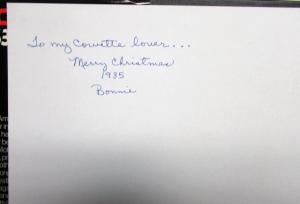 To my Corvette lover...
Merry Christmas
1985
Bonnie